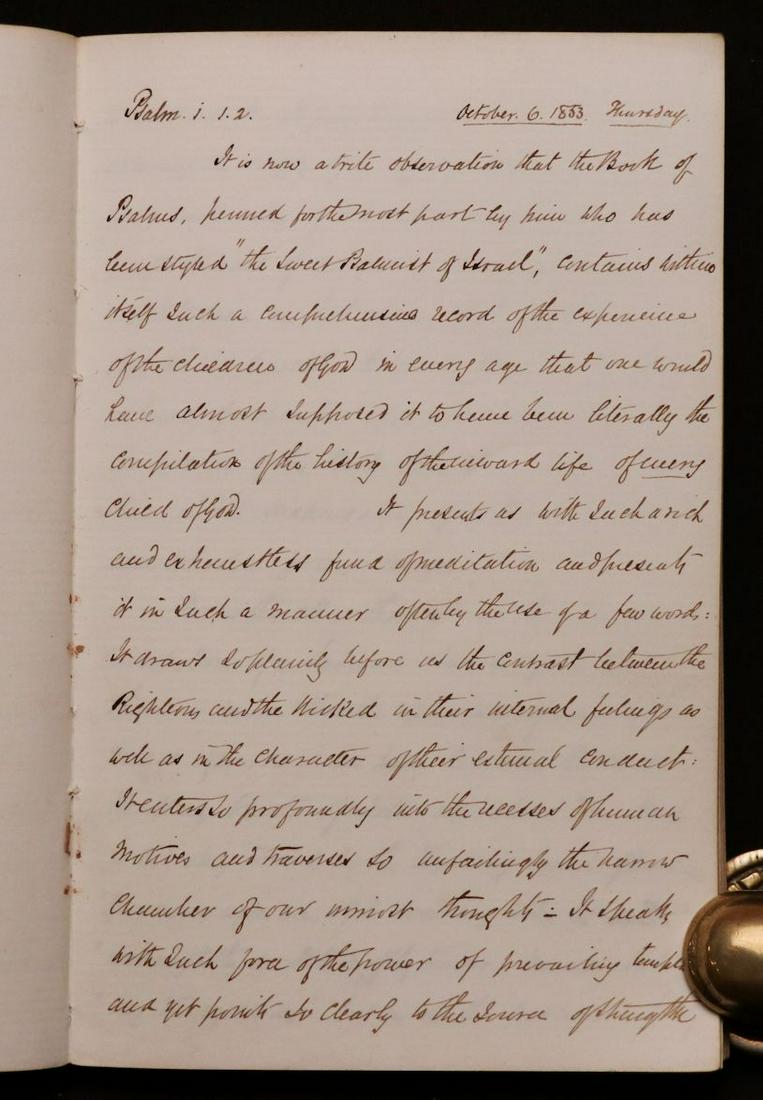 Psalm. i. 1.2. October. 6. 1853. Thursday.
It is now a trite observation that the Book of
Psalms, penned for the most part by him who has
been styled "the Sweet Psalmist of Israel", contains within
itself such a comprehensive record of the experience
of the children of God in every age that one would
have almost supposed it to have been literally the
compilation of the history of the inward life of every
child of God. It presents us with such a rich
and exhaustless fund of meditation and presents
it in such a manner often by the use of a few words:
It draws so plainly before us the contrast between the
Righteous and the Wicked in their internal feelings as
well as in the character of their external conduct:
It enters so profoundly into the recesses of human
motives and traverses so unfailingly the narrow
chamber of our inmost thoughts = It speaks
with such force of the power of prevailing
and yet points so clearly to the source of strength